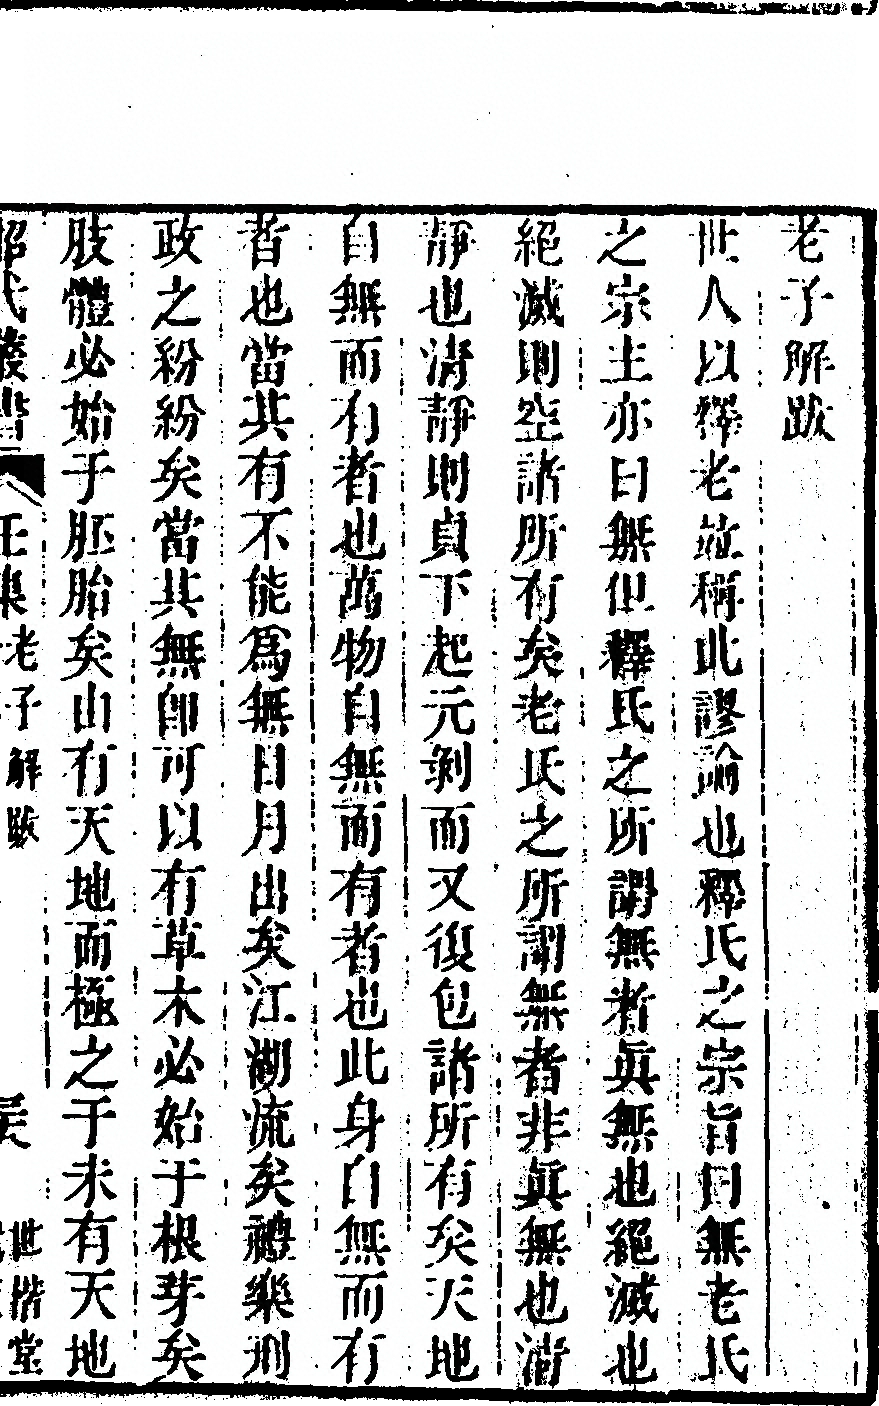 老子解跋
世人以釋老竝稱此謬論也釋氏之宗旨曰無老氏
之宗主亦曰無但釋氏之所謂無者眞無也絕滅也
絕滅則空諸所有矣老氏之所謂無者非眞無也清
靜也清靜則貞下起元剝而又復包諸所有矣天地
自無而有者也萬物自無而有者也此身自無而有
者也當其有不能爲無日月出矣江湖流矣禮樂刑
政之紛紛矣當其無卽可以有草木必始于根芽矣
肢體必始于胚胎矣由有天地而極之于未有天地
昭代叢書 壬集 老子解跋 世楷堂